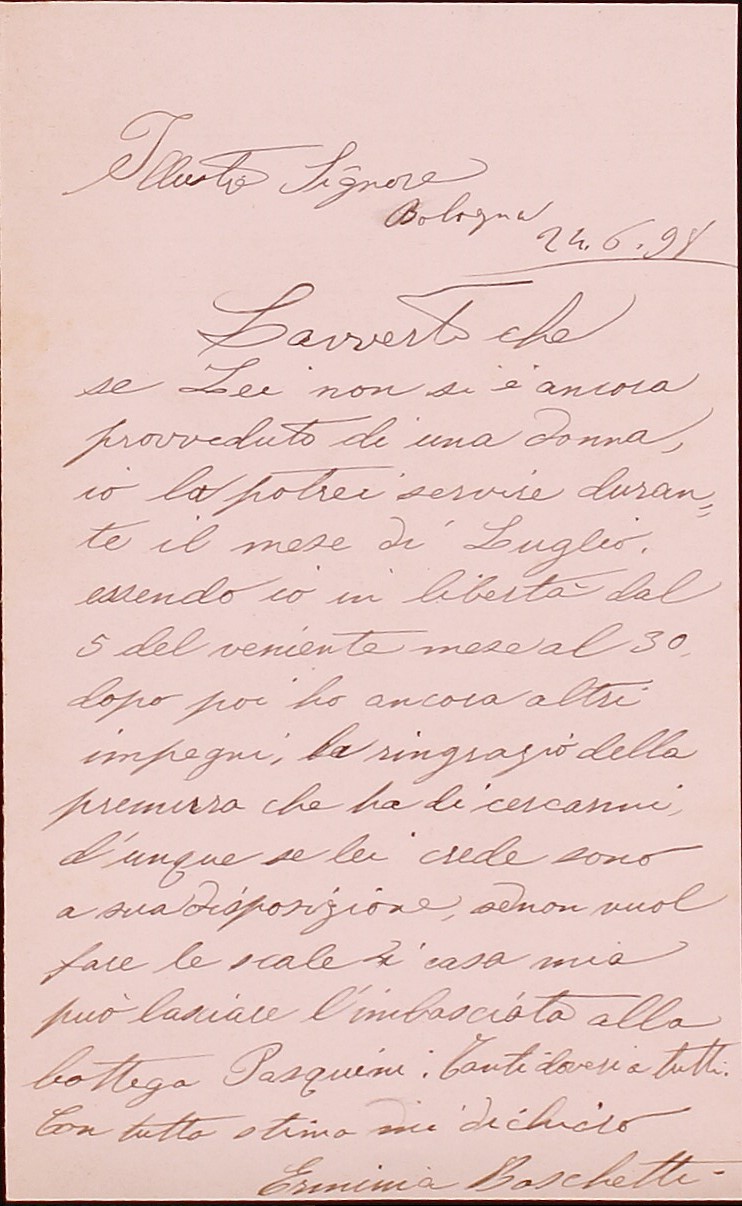 Illustre Signore
Bologna
24. 6. 98
L'avverto che
se Lei non si è ancora
provveduto di una donna,
io la potrei servire duran=
te il mese di Luglio.
essendo io in libertà dal
5 del veniente mese al 30,
dopo poi ho ancora altri
impegni, la ringrazio della
premura che ha di cercarmi,
d'unque se lei crede sono
a sua disposizione, se non vuol
fare le scale di casa mia
può lasciare l'imbasciata alla
bottega Pasquini. Tanti doveri a tutti.
Con tutta stima mi dichiaro
Erminia Boschetti